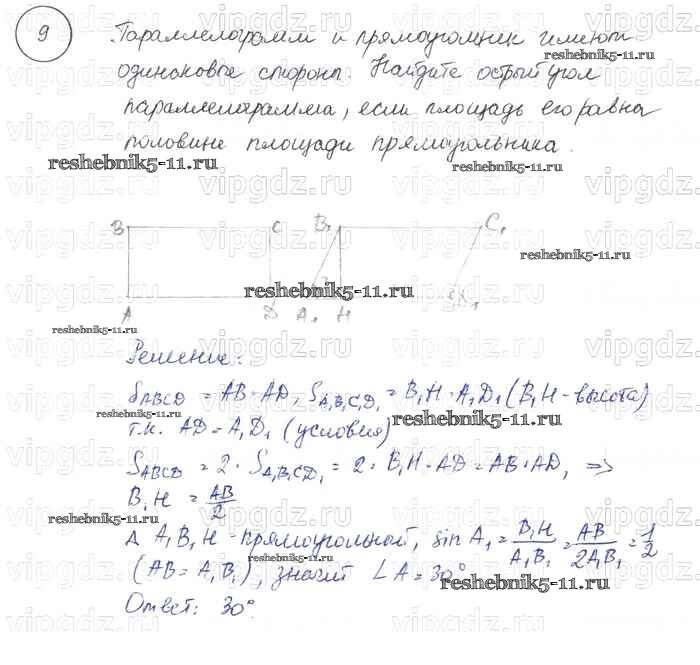 9
Параллелограмм и прямоугольник имеют
одинаковые стороны. Найдите острый угол
параллелограмма, если площадь его равна
половине площади прямоугольника.
B C B₁ C₁
A D A₁ H D₁
Решение:
S_ABCD = AB·AD, S_A₁B₁C₁D₁ = B₁H·A₁D₁ (B₁H-высота)
т.к. AD=A₁D₁ (условия)
S_ABCD = 2·S_A₁B₁C₁D₁ = 2·B₁H·AD = AB·AD, ⇒
B₁H = AB/2
Δ A₁B₁H - прямоугольной, sin A₁ = B₁H/A₁B₁ = AB/2A₁B₁ = 1/2
(AB = A₁B₁), значит ∠A = 30°
Ответ: 30°.
reshebnik5-11.ru
vipgdz.ru